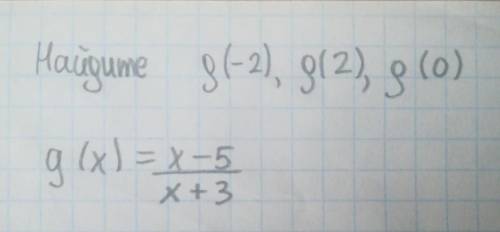 Найдите g(-2), g(2), g(0)
g(x) = x-5 / x+3